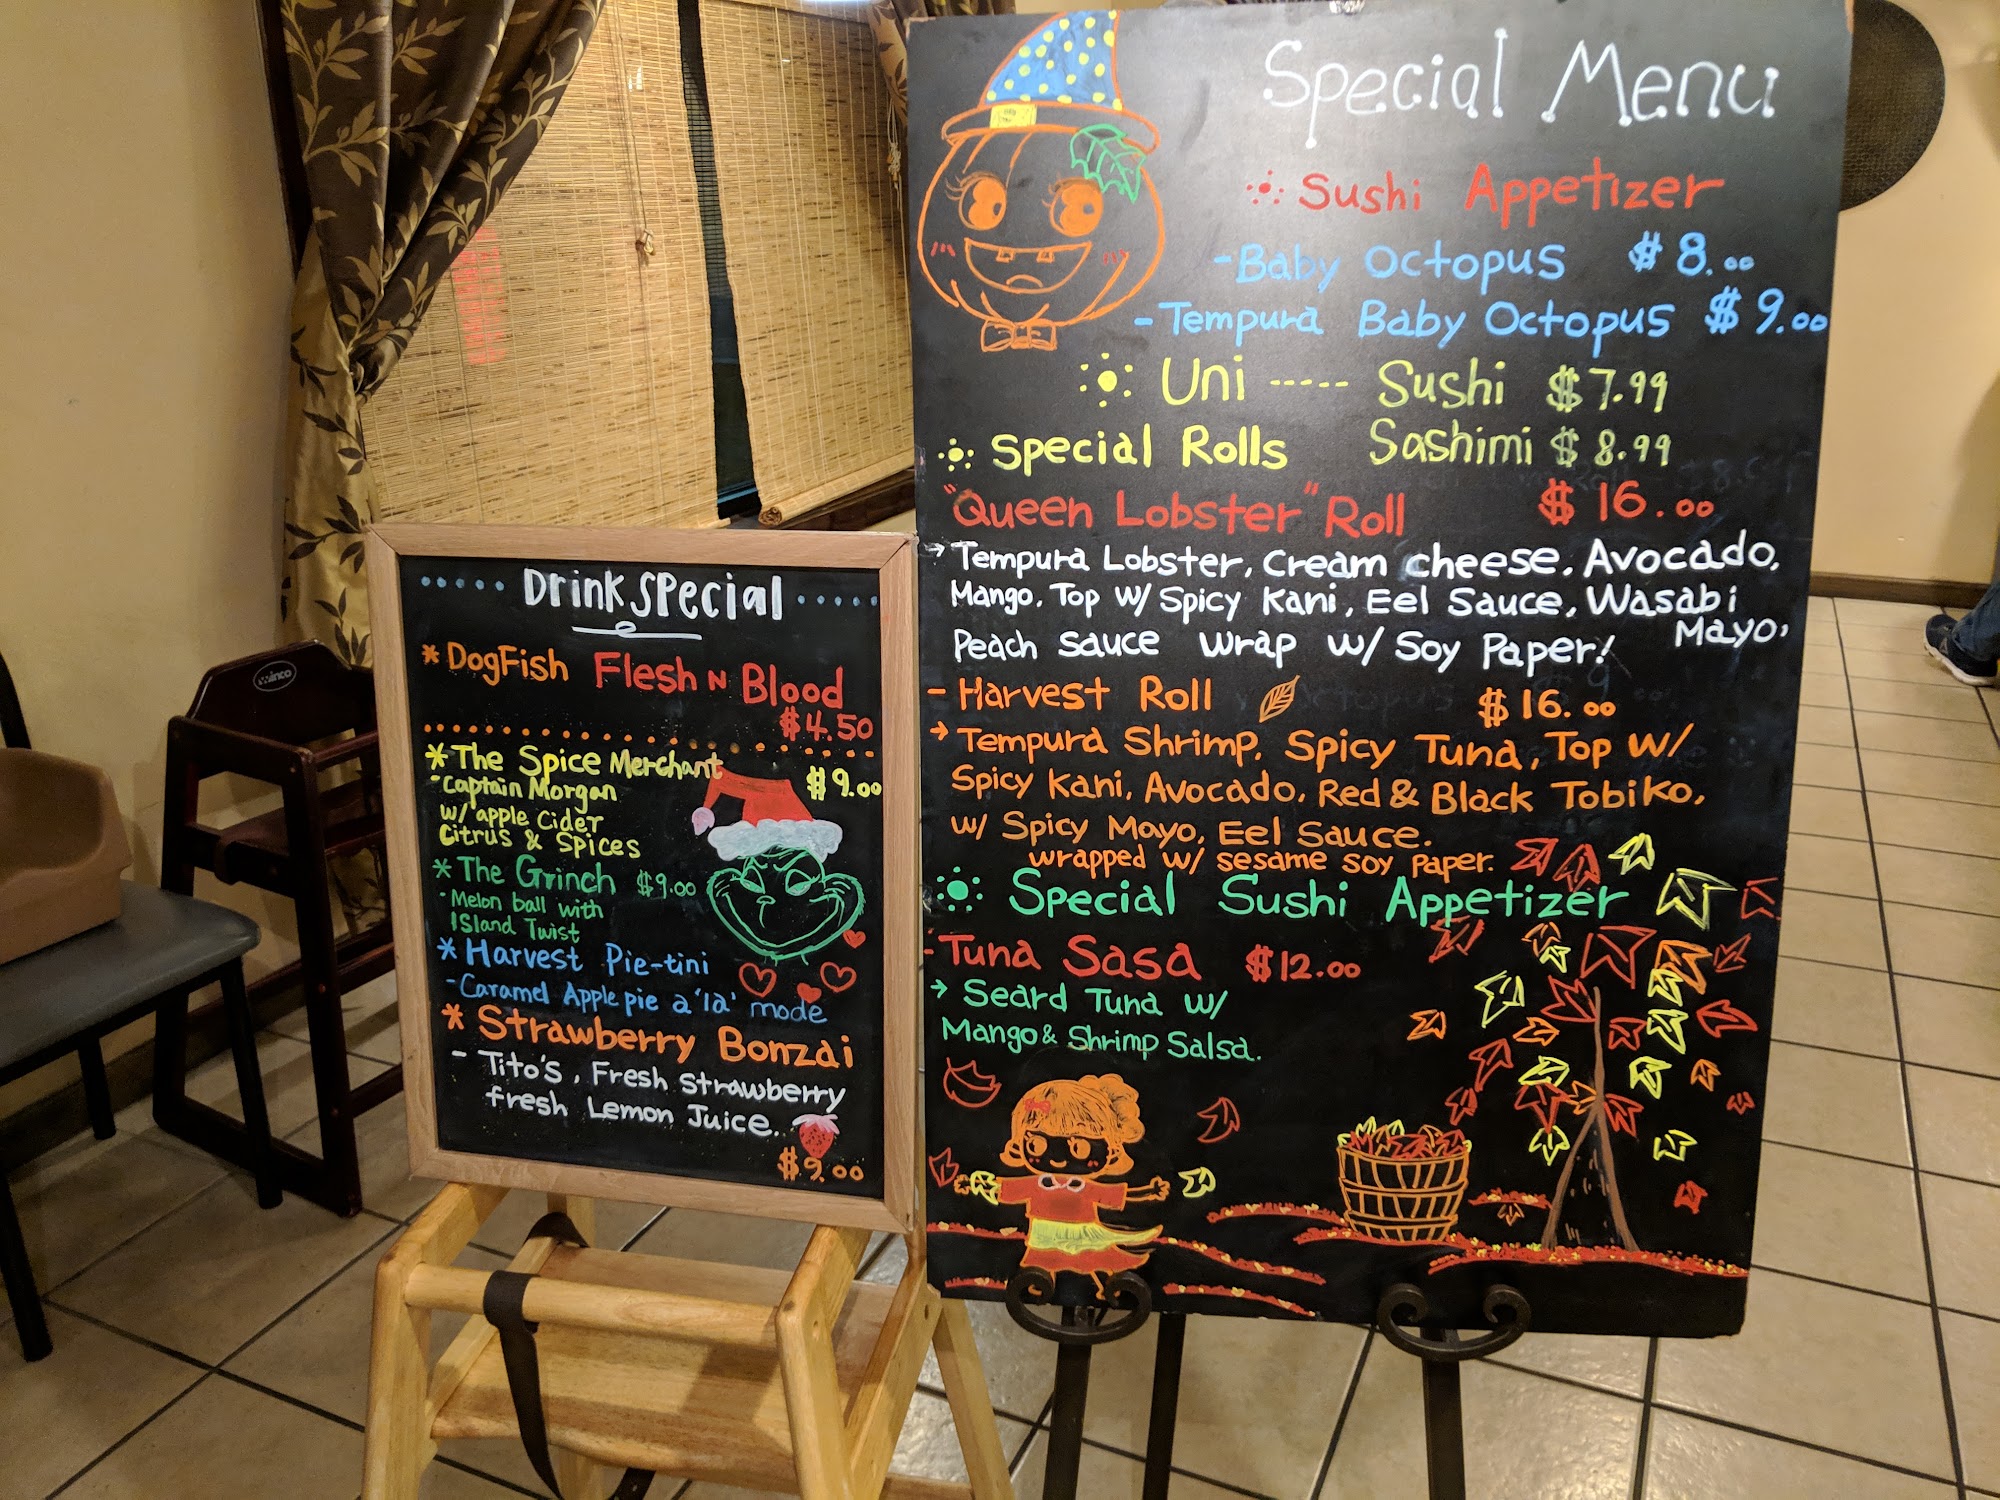 Special Menu
Sushi Appetizer
- Baby Octopus $8.00
- Tempura Baby Octopus $9.00
Uni ----- Sushi $7.99
Special Rolls Sashimi $8.99
"Queen Lobster" Roll $16.00
→ Tempura Lobster, Cream cheese, Avocado,
Mango, Top w/ Spicy Kani, Eel Sauce, Wasabi
Mayo,
Peach Sauce wrap w/ Soy Paper!
- Harvest Roll $16.00
→ Tempura Shrimp, Spicy Tuna, Top w/
Spicy Kani, Avocado, Red & Black Tobiko,
w/ Spicy Mayo, Eel Sauce.
wrapped w/ sesame soy paper.
Special Sushi Appetizer
- Tuna Sasa $12.00
→ Seard Tuna w/
Mango & Shrimp Salsa.
..... Drink Special .....
* DogFish Flesh N Blood
$4.50
* The Spice Merchant $9.00
- Captain Morgan
w/ apple Cider
Citrus & Spices
* The Grinch $9.00
- Melon ball with
Island Twist
* Harvest Pie-tini
- Caramel Apple pie a 'la' mode
* Strawberry Bonzai
- Tito's, Fresh Strawberry
fresh Lemon Juice..
$9.00
winco